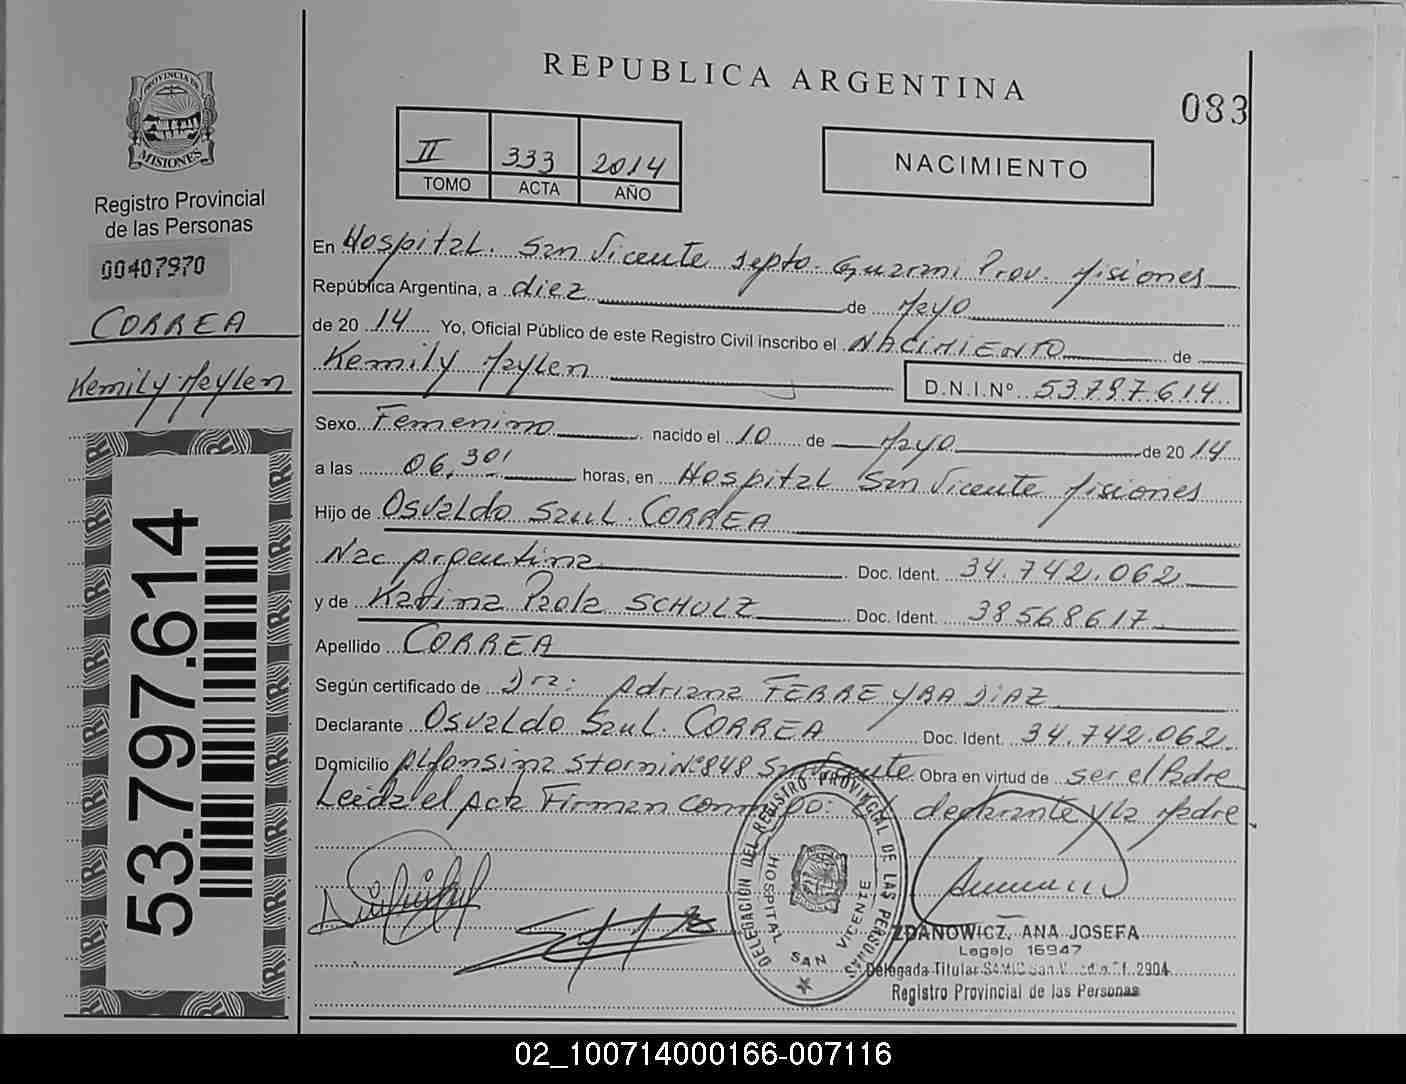 REPUBLICA ARGENTINA
083
PROVINCIA DE
MISIONES
Registro Provincial
de las Personas
00407970
CORREA
Kemily Maylen
53.797.614
II 333 2014
TOMO ACTA AÑO
NACIMIENTO
En Hospital. San Vicente Depto. Guarani Prov. Misiones
República Argentina, a diez de Mayo
de 20 14 Yo, Oficial Público de este Registro Civil inscribo el NACIMIENTO de
Kemily Maylen D.N.I.Nº 53797614
Sexo Femenino nacido el 10 de Mayo de 2014
a las 06,30' horas, en Hospital San Vicente Misiones
Hijo de Osvaldo Saul. CORREA
Nac Argentina Doc. Ident. 34.742.062
y de Karina Paola SCHULZ Doc. Ident. 38568617
Apellido CORREA
Según certificado de Dra: Adriana FERREYRA DIAZ
Declarante Osvaldo Saul. CORREA Doc. Ident. 34.742.062
Domicilio Alfonsina Storni Nº848 San Vicente Obra en virtud de ser el Padre
Leida el Acta Firman conmigo: El declarante y la Madre
DELEGACION DEL REGISTRO PROVINCIAL DE LAS PERSONAS
HOSPITAL SAN VICENTE
ZDANOWICZ, ANA JOSEFA
Legajo 16947
Delegada Titular SAMIC San 2904
Registro Provincial de las Personas
02_100714000166-007116